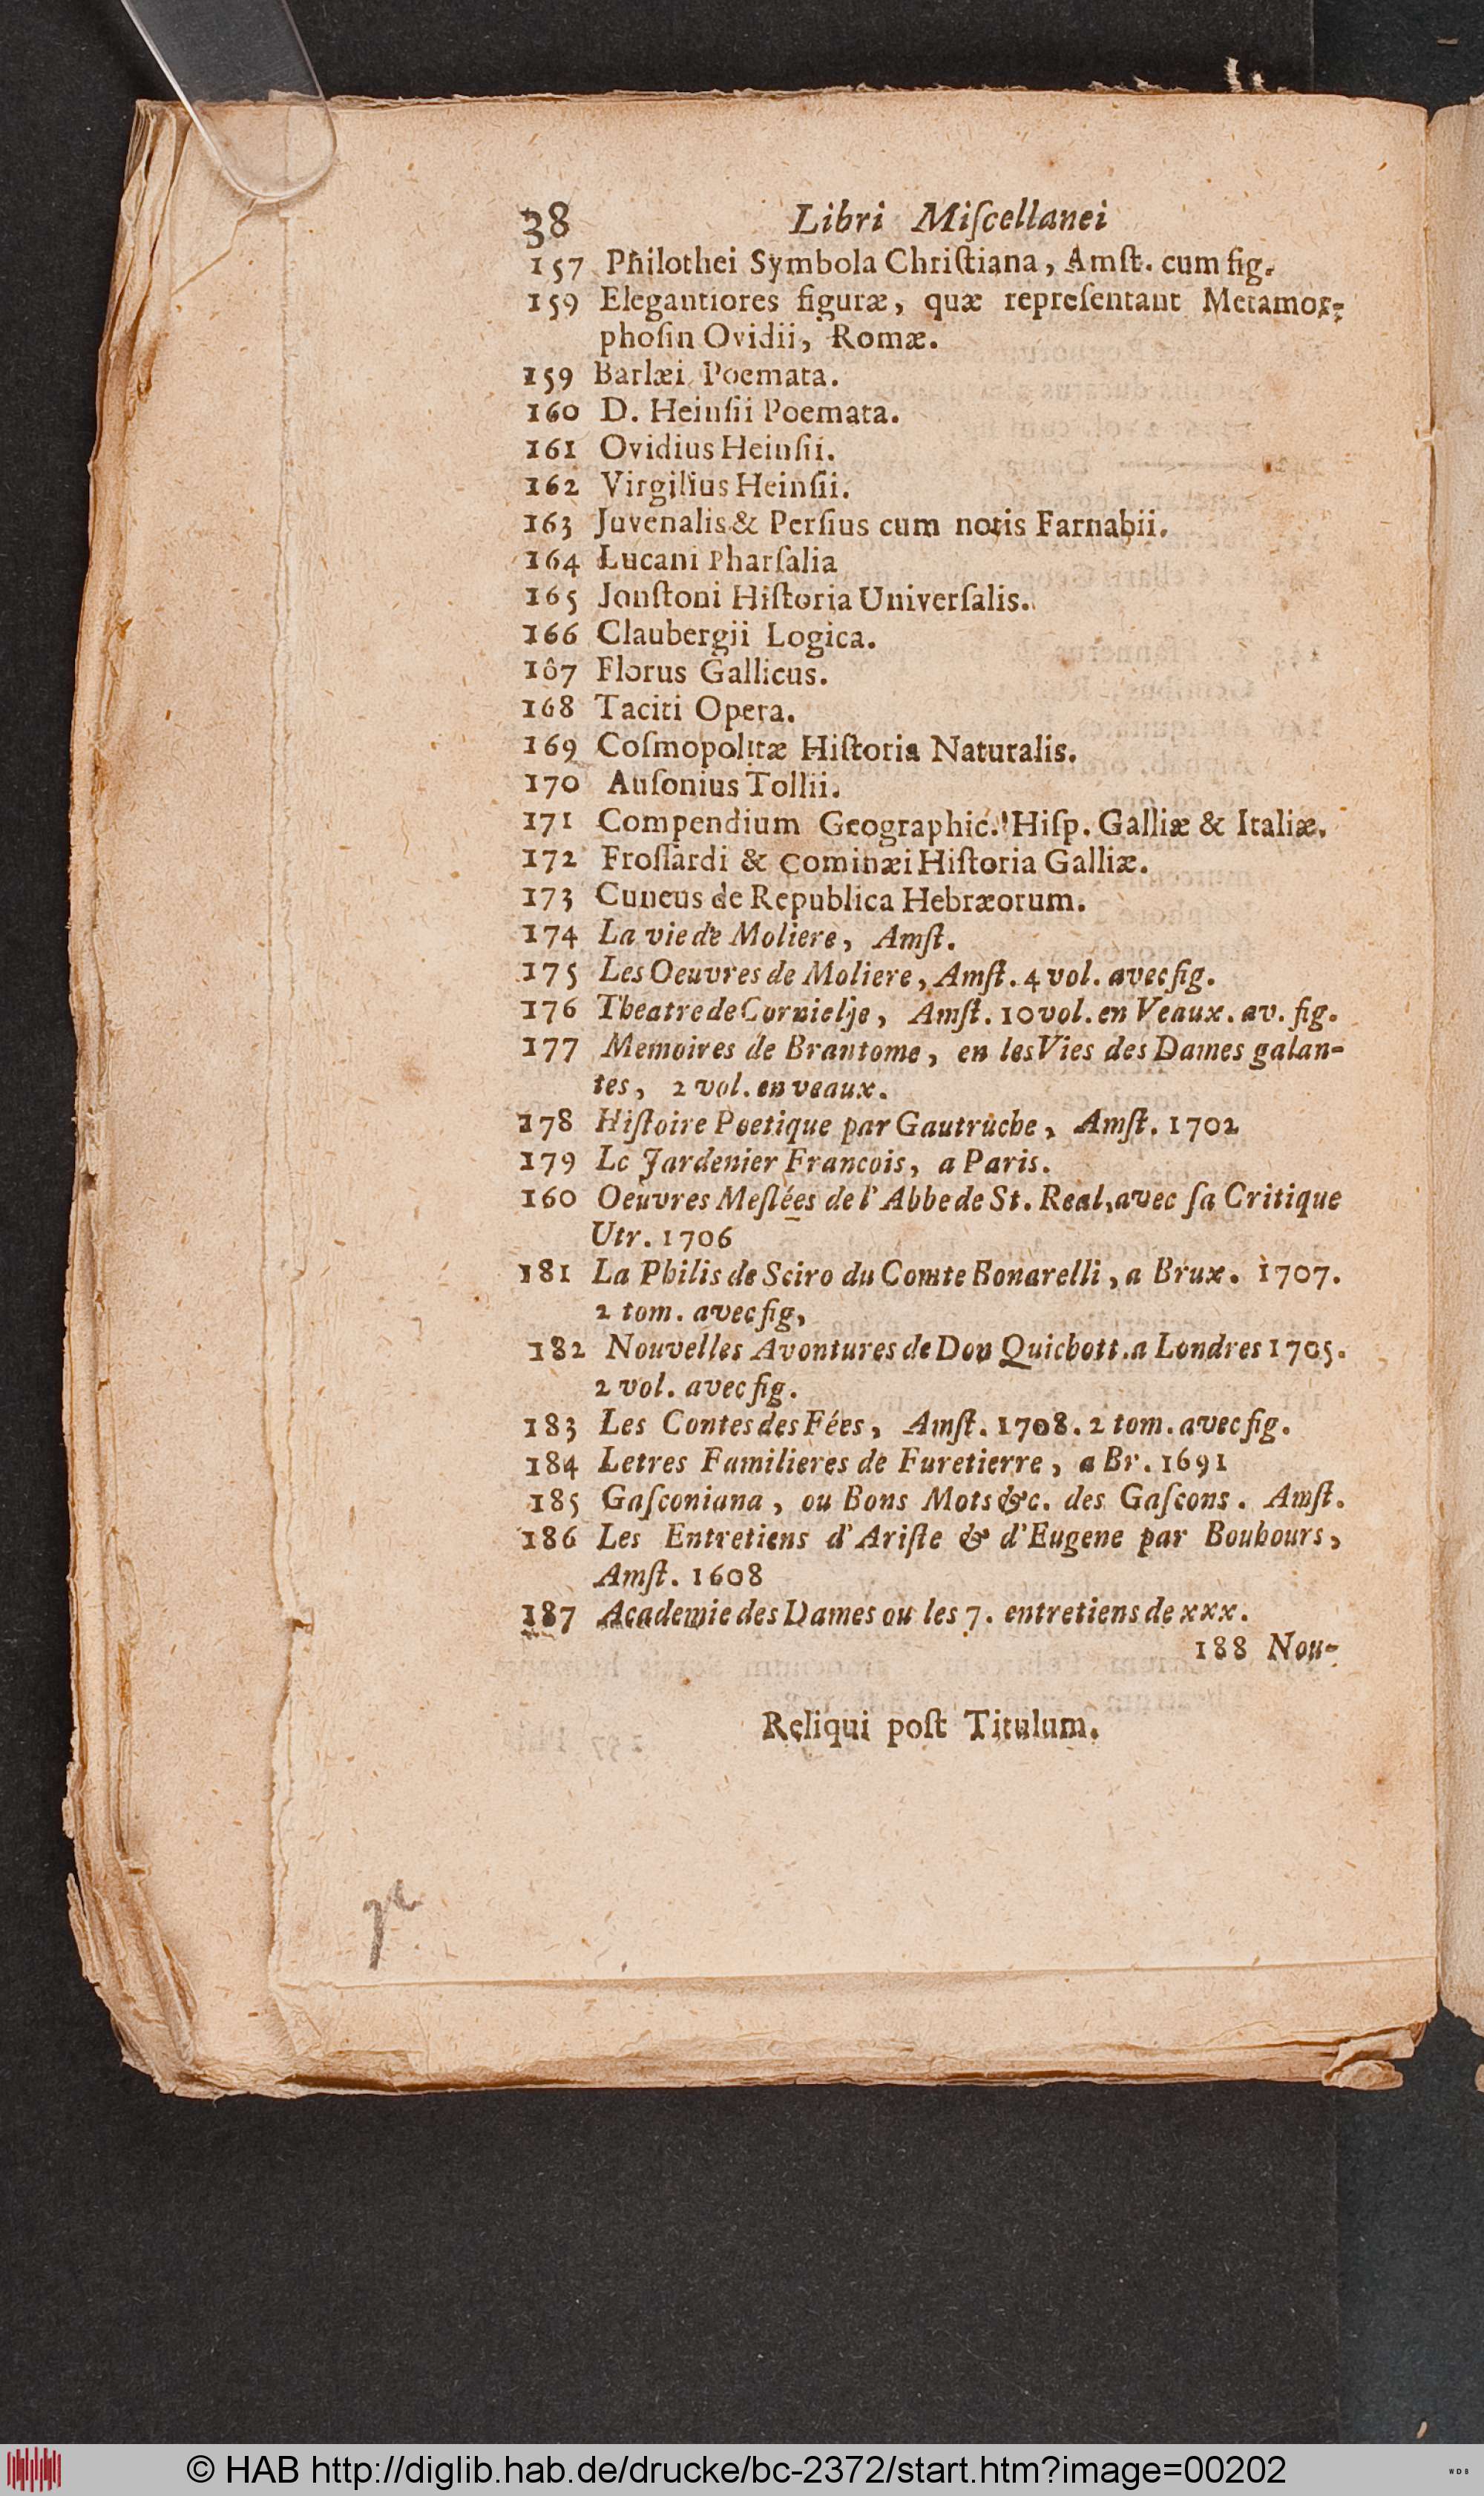 38 Libri Miſcellanei
157 Philothei Symbola Chriſtiana, Amſt. cum fig.
159 Elegantiores figuræ, quæ repreſentant Metamor-
phoſin Ovidii, Romæ.
159 Barlæi Poemata.
160 D. Heinſii Poemata.
161 Ovidius Heinſii.
162 Virgilius Heinſii.
163 Juvenalis & Perſius cum notis Farnabii.
164 Lucani Pharſalia
165 Jonſtoni Hiſtoria Univerſalis.
166 Claubergii Logica.
167 Florus Gallicus.
168 Taciti Opera.
169 Coſmopolitæ Hiſtoria Naturalis.
170 Auſonius Tollii.
171 Compendium Geographic. Hiſp. Galliæ & Italiæ.
172 Froſſardi & Cominæi Hiſtoria Galliæ.
173 Cuneus de Republica Hebræorum.
174 La vie de Moliere, Amſt.
175 Les Oeuvres de Moliere, Amſt. 4 vol. avec fig.
176 Theatre de Cornielje, Amſt. 10 vol. en Veaux. av. fig.
177 Memoires de Brantome, en les Vies des Dames galan-
tes, 2 vol. en veaux.
178 Hiſtoire Poetique par Gautruche, Amſt. 1702
179 Le Jardenier Francois, a Paris.
160 Oeuvres Meſlées de l' Abbe de St. Real, avec ſa Critique
Utr. 1706
181 La Philis de Sciro du Comte Bonarelli, a Brux. 1707.
2 tom. avec fig,
182 Nouvelles Avontures de Don Quichott. a Londres 1705.
2 vol. avec fig.
183 Les Contes des Fées, Amſt. 1708. 2 tom. avec fig.
184 Letres Familieres de Furetierre, a Br. 1691
185 Gaſconiana, ou Bons Mots &c. des Gaſcons. Amſt.
186 Les Entretiens d'Ariſte & d'Eugene par Bouhours,
Amſt. 1608
187 Academie des Dames ou les 7. entretiens de xxx.
188 Nou-
Reliqui poſt Titulum.
© HAB http://diglib.hab.de/drucke/bc-2372/start.htm?image=00202
WDB